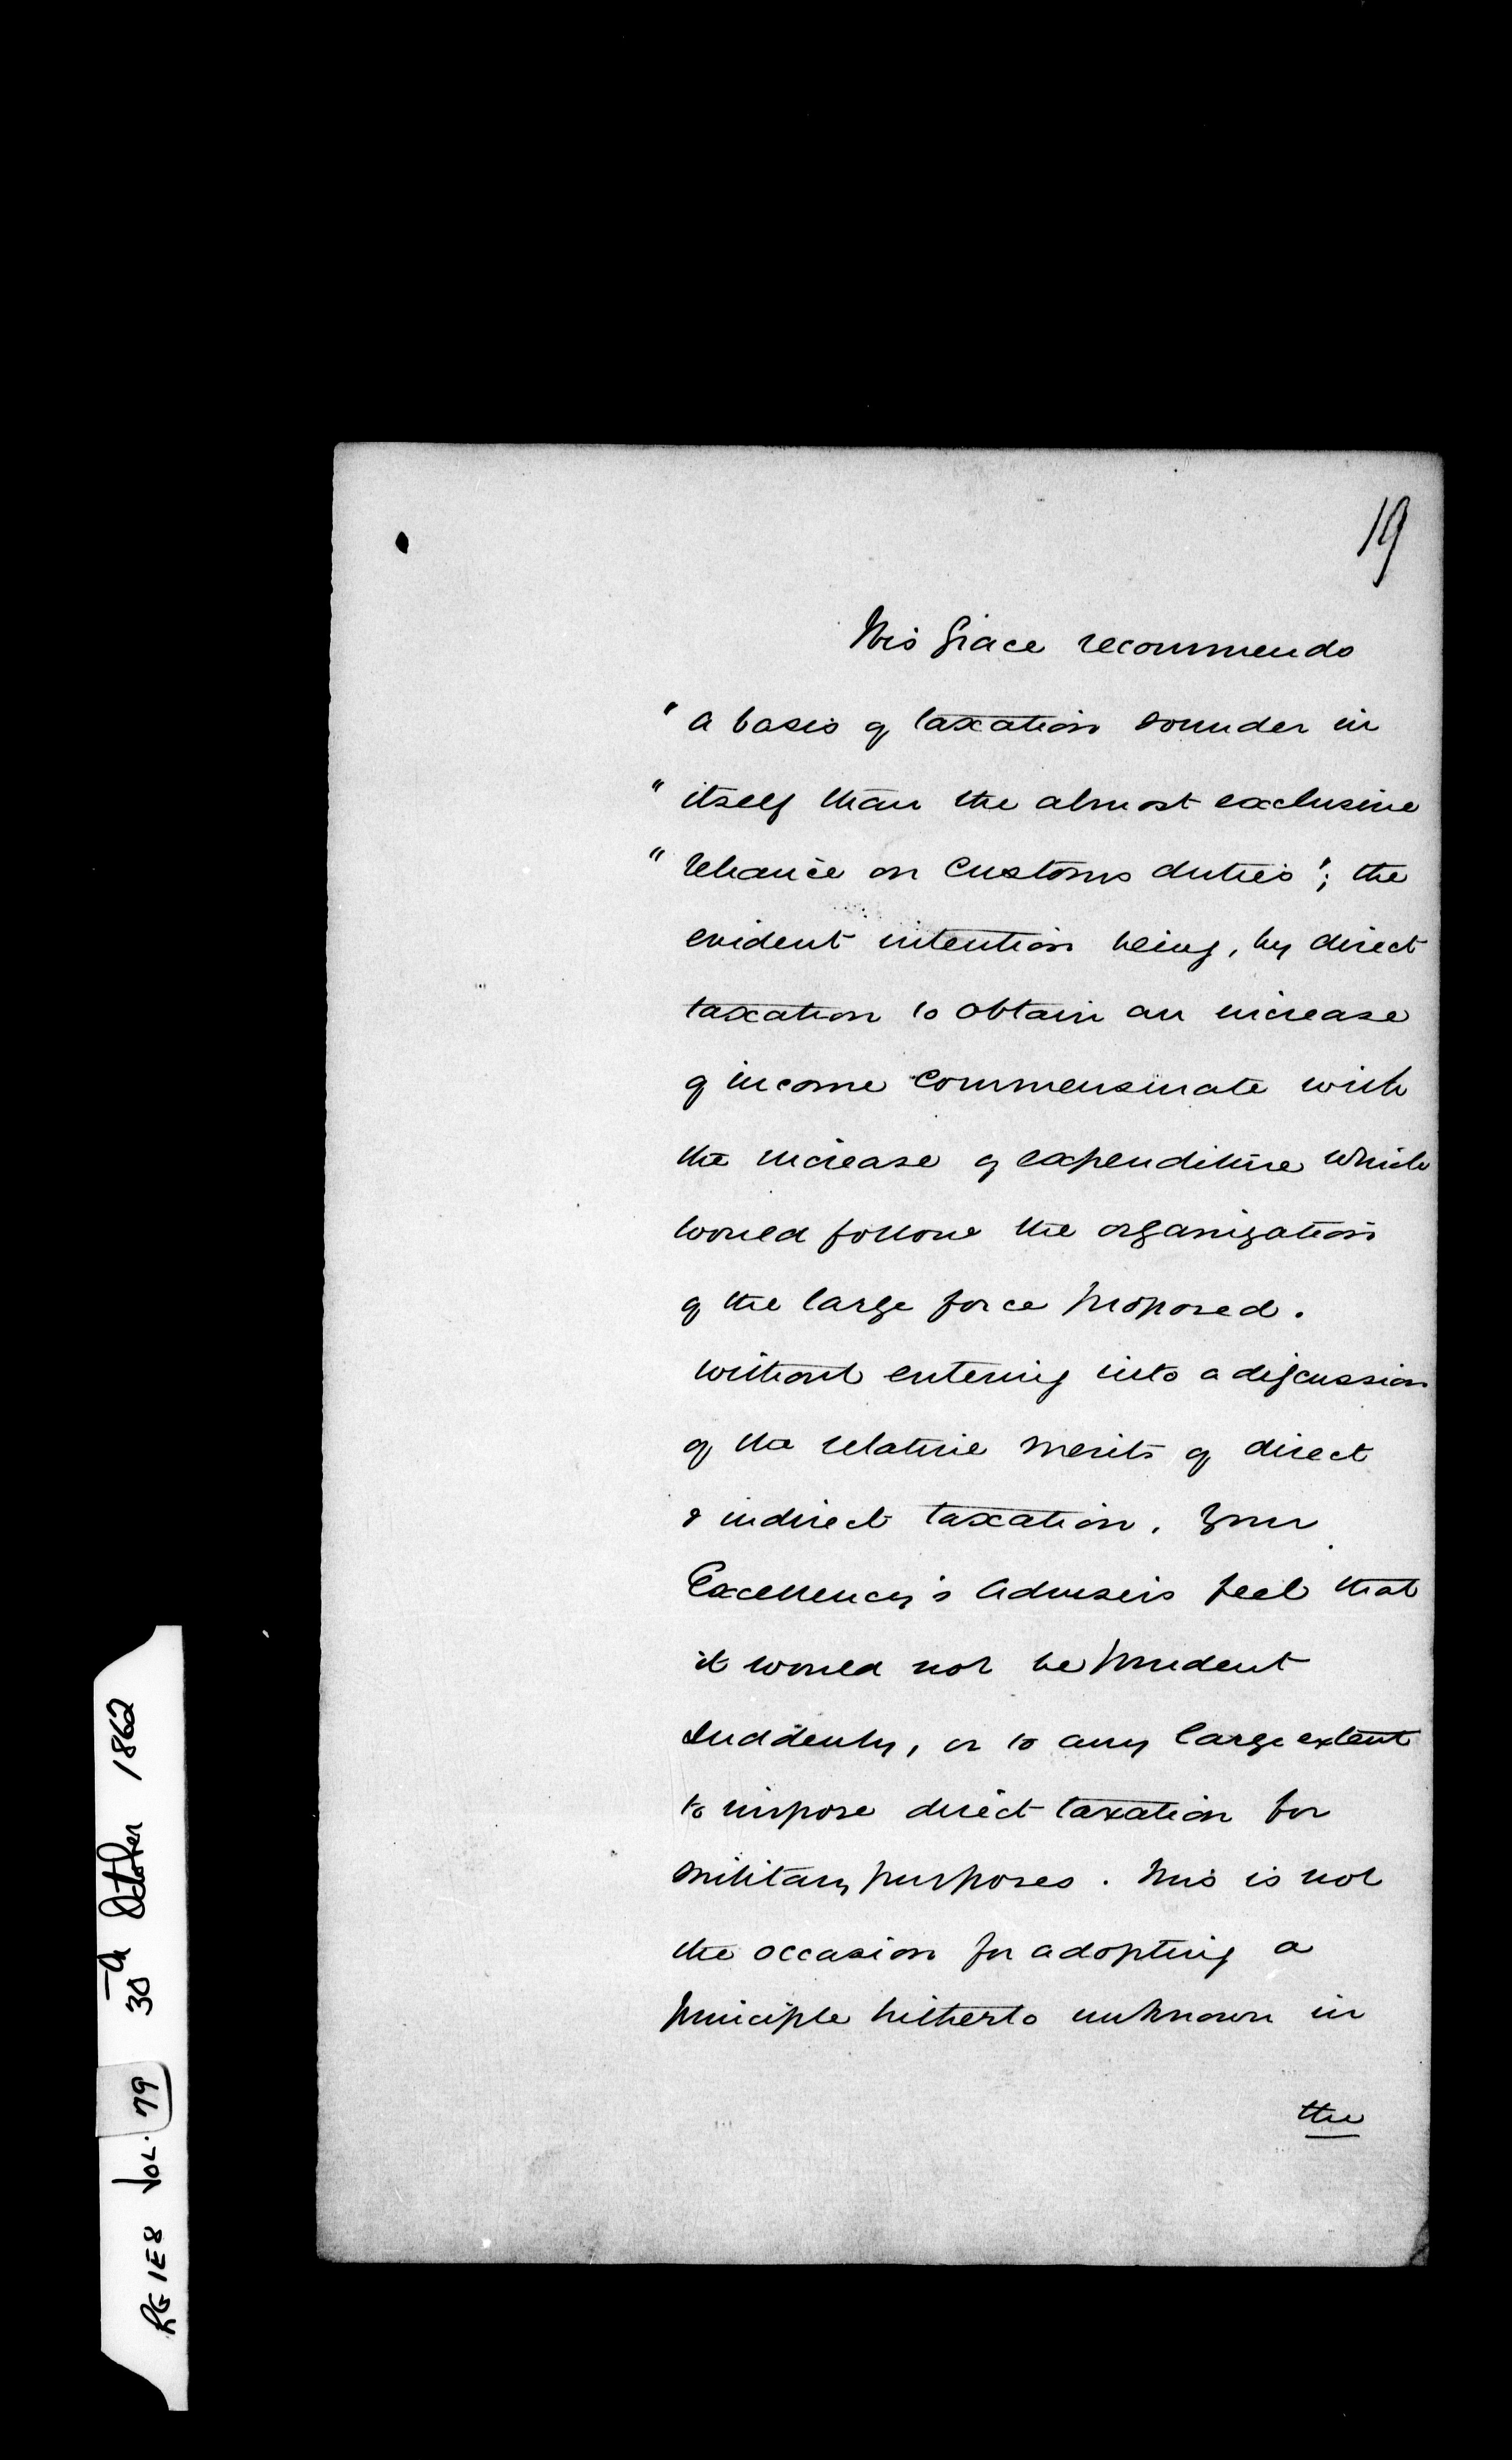 19
His Grace recommends
" a basis of taxation sounder in
" itself than the almost exclusive
" reliance on Customs duties"; the
evident intention being, by direct
taxation to obtain an increase
of income commensurate with
the increase of expenditure which
would follow the organization
of the large force proposed.
Without entering into a discussion
of the relative merits of direct
& indirect taxation, Your
Excellency's Advisers feel that
it would not be prudent
suddenly, or to any large extent
to impose direct taxation for
military purposes. This is not
the occasion for adopting a
principle hitherto unknown in
the
RG 1E8 VOL. 79 30th October 1862